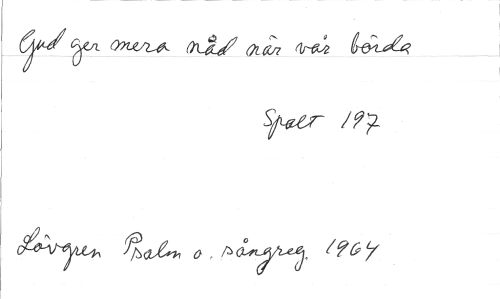 Gud ger mera nåd när vår börda
Spalt 197
Lövgren Psalm o. sångreg. 1964